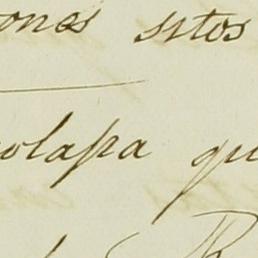 ones sitos
olapa qu